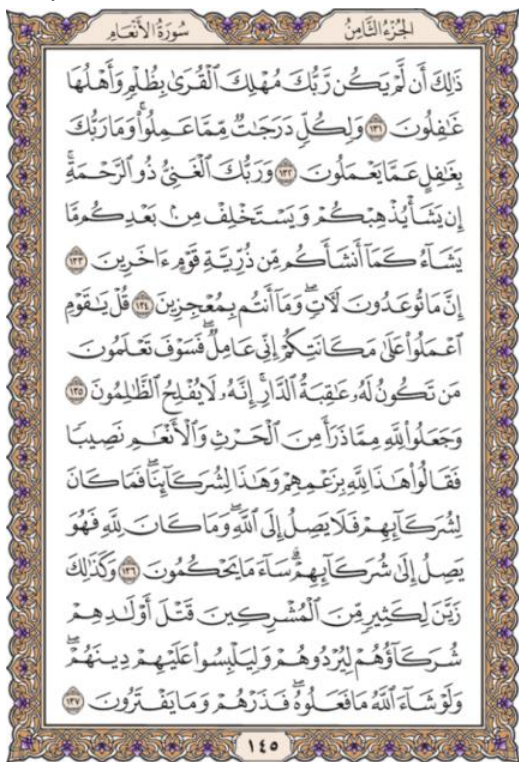 الجزء الثامن
سورة الأنعام
ذَٰلِكَ أَن لَّمْ يَكُن رَّبُّكَ مُهْلِكَ ٱلْقُرَىٰ بِظُلْمٍ وَأَهْلُهَا
غَٰفِلُونَ ١٣١ وَلِكُلٍّ دَرَجَٰتٌ مِّمَّا عَمِلُوا۟ۚ وَمَا رَبُّكَ
بِغَٰفِلٍ عَمَّا يَعْمَلُونَ ١٣٢ وَرَبُّكَ ٱلْغَنِىُّ ذُو ٱلرَّحْمَةِۚ
إِن يَشَأْ يُذْهِبْكُمْ وَيَسْتَخْلِفْ مِنۢ بَعْدِكُم مَّا
يَشَآءُ كَمَآ أَنشَأَكُم مِّن ذُرِّيَّةِ قَوْمٍ ءَاخَرِينَ ١٣٣
إِنَّ مَا تُوعَدُونَ لَءَاتٍۖ وَمَآ أَنتُم بِمُعْجِزِينَ ١٣٤ قُلْ يَٰقَوْمِ
ٱعْمَلُوا۟ عَلَىٰ مَكَانَتِكُمْ إِنِّى عَامِلٌۖ فَسَوْفَ تَعْلَمُونَ
مَن تَكُونُ لَهُۥ عَٰقِبَةُ ٱلدَّارِۚ إِنَّهُۥ لَا يُفْلِحُ ٱلظَّٰلِمُونَ ١٣٥
وَجَعَلُوا۟ لِلَّهِ مِمَّا ذَرَأَ مِنَ ٱلْحَرْثِ وَٱلْأَنْعَٰمِ نَصِيبًا
فَقَالُوا۟ هَٰذَا لِلَّهِ بِزَعْمِهِمْ وَهَٰذَا لِشُرَكَآئِنَاۖ فَمَا كَانَ
لِشُرَكَآئِهِمْ فَلَا يَصِلُ إِلَى ٱللَّهِۖ وَمَا كَانَ لِلَّهِ فَهُوَ
يَصِلُ إِلَىٰ شُرَكَآئِهِمْۗ سَآءَ مَا يَحْكُمُونَ ١٣٦ وَكَذَٰلِكَ
زَيَّنَ لِكَثِيرٍ مِّنَ ٱلْمُشْرِكِينَ قَتْلَ أَوْلَٰدِهِمْ
شُرَكَآؤُهُمْ لِيُرْدُوهُمْ وَلِيَلْبِسُوا۟ عَلَيْهِمْ دِينَهُمْۖ
وَلَوْ شَآءَ ٱللَّهُ مَا فَعَلُوهُۖ فَذَرْهُمْ وَمَا يَفْتَرُونَ ١٣٧
١٤٥